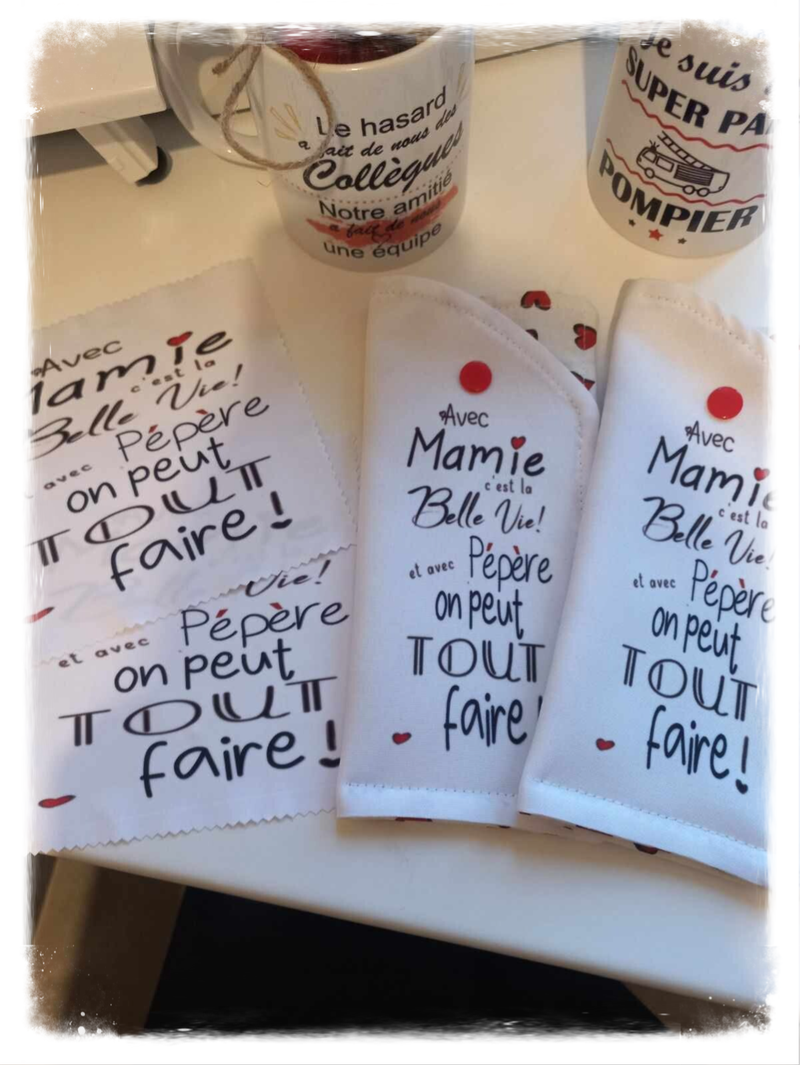 Le hasard
a fait de nous des
Collègues
Notre amitié
a fait de nous
une équipe
Je suis
SUPER
POMPIER
Avec
Mamie
c'est la
Belle Vie!
avec Pépère
on peut
TOUT
faire!
Vie!
et avec Pépère
on peut
TOUT
faire!
Avec
Mamie
c'est la
Belle Vie!
et avec Pépère
on peut
TOUT
faire!
Avec
Mamie
c'est la
Belle Vie!
et avec Pépère
on peut
TOUT
faire!